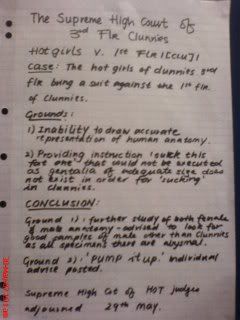 The Supreme High Court of
3rd Flr Clunnies
Hot girls V. 1st Flr [ccu]
Case: The hot girls of clunnies 3rd
flr bring a suit against the 1st flr
of Clunnies.
Grounds:
1) Inability to draw accurate
representation of human anatomy.
2) Providing instruction 'suck this'
for one that could not be executed
as genitalia of adequate size does
not exist in order for 'sucking'
in clunnies.
CONCLUSION:
Ground 1): further study of both female
& male anatomy - advised to look for
good samples of male other than clunnies
as all specimens there are abysmal.
Ground 2): 'PUMP it up' individual
advise posted.
Supreme High Crt of HOT judges
adjourned 29th may.